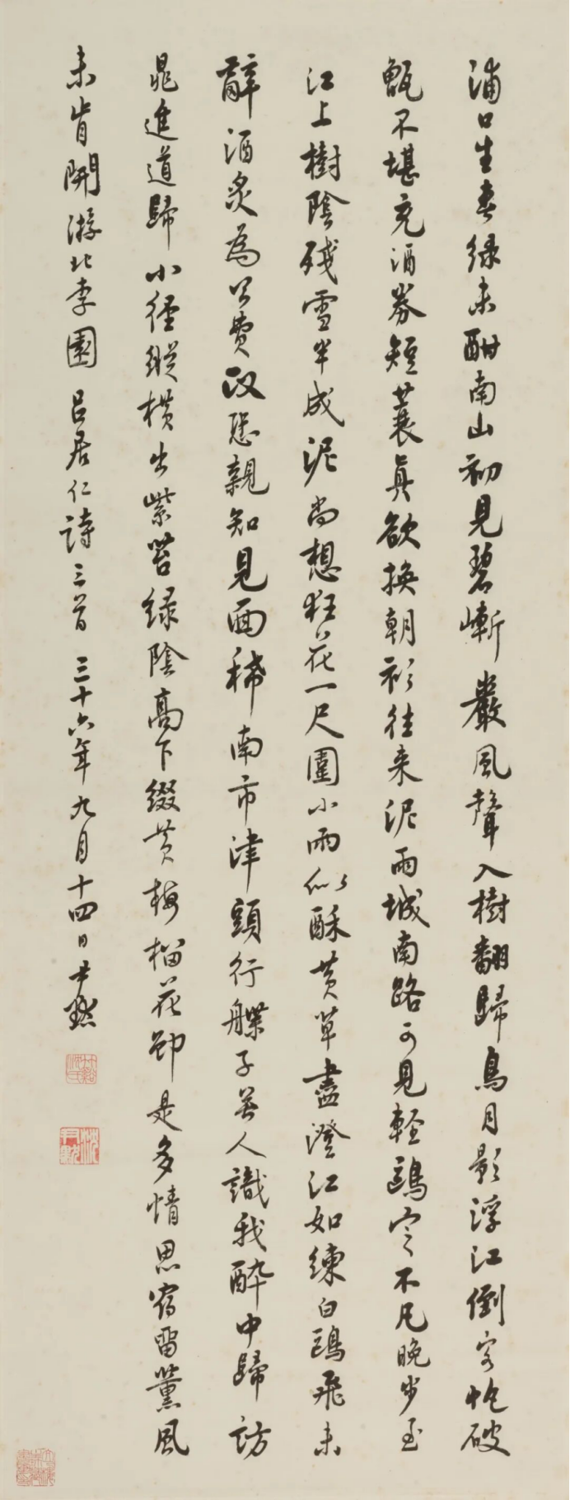 浦口生春緑未酣南山初見碧嶄巖風聲入樹翻歸鳥月影浮江倒客帆破
甑不堪充酒券短蓑真欲換朝衫往来泥雨城南路可見輕鷗定不凡晚步至
江上樹陰殘雪半成泥尚想狂花一尺圍小雨似酥黄草盡澄江如練白鷗飛未
辭酒炙為公費政恐親知見面稀南市津頭行艓子無人識我醉中歸訪
晁進道歸小徑縱横出紫苔緑陰高下綴黄梅榴花卻是多情思宿留薰風
未肯開游北李園 吕居仁詩三首 三十六年九月十四日尹默